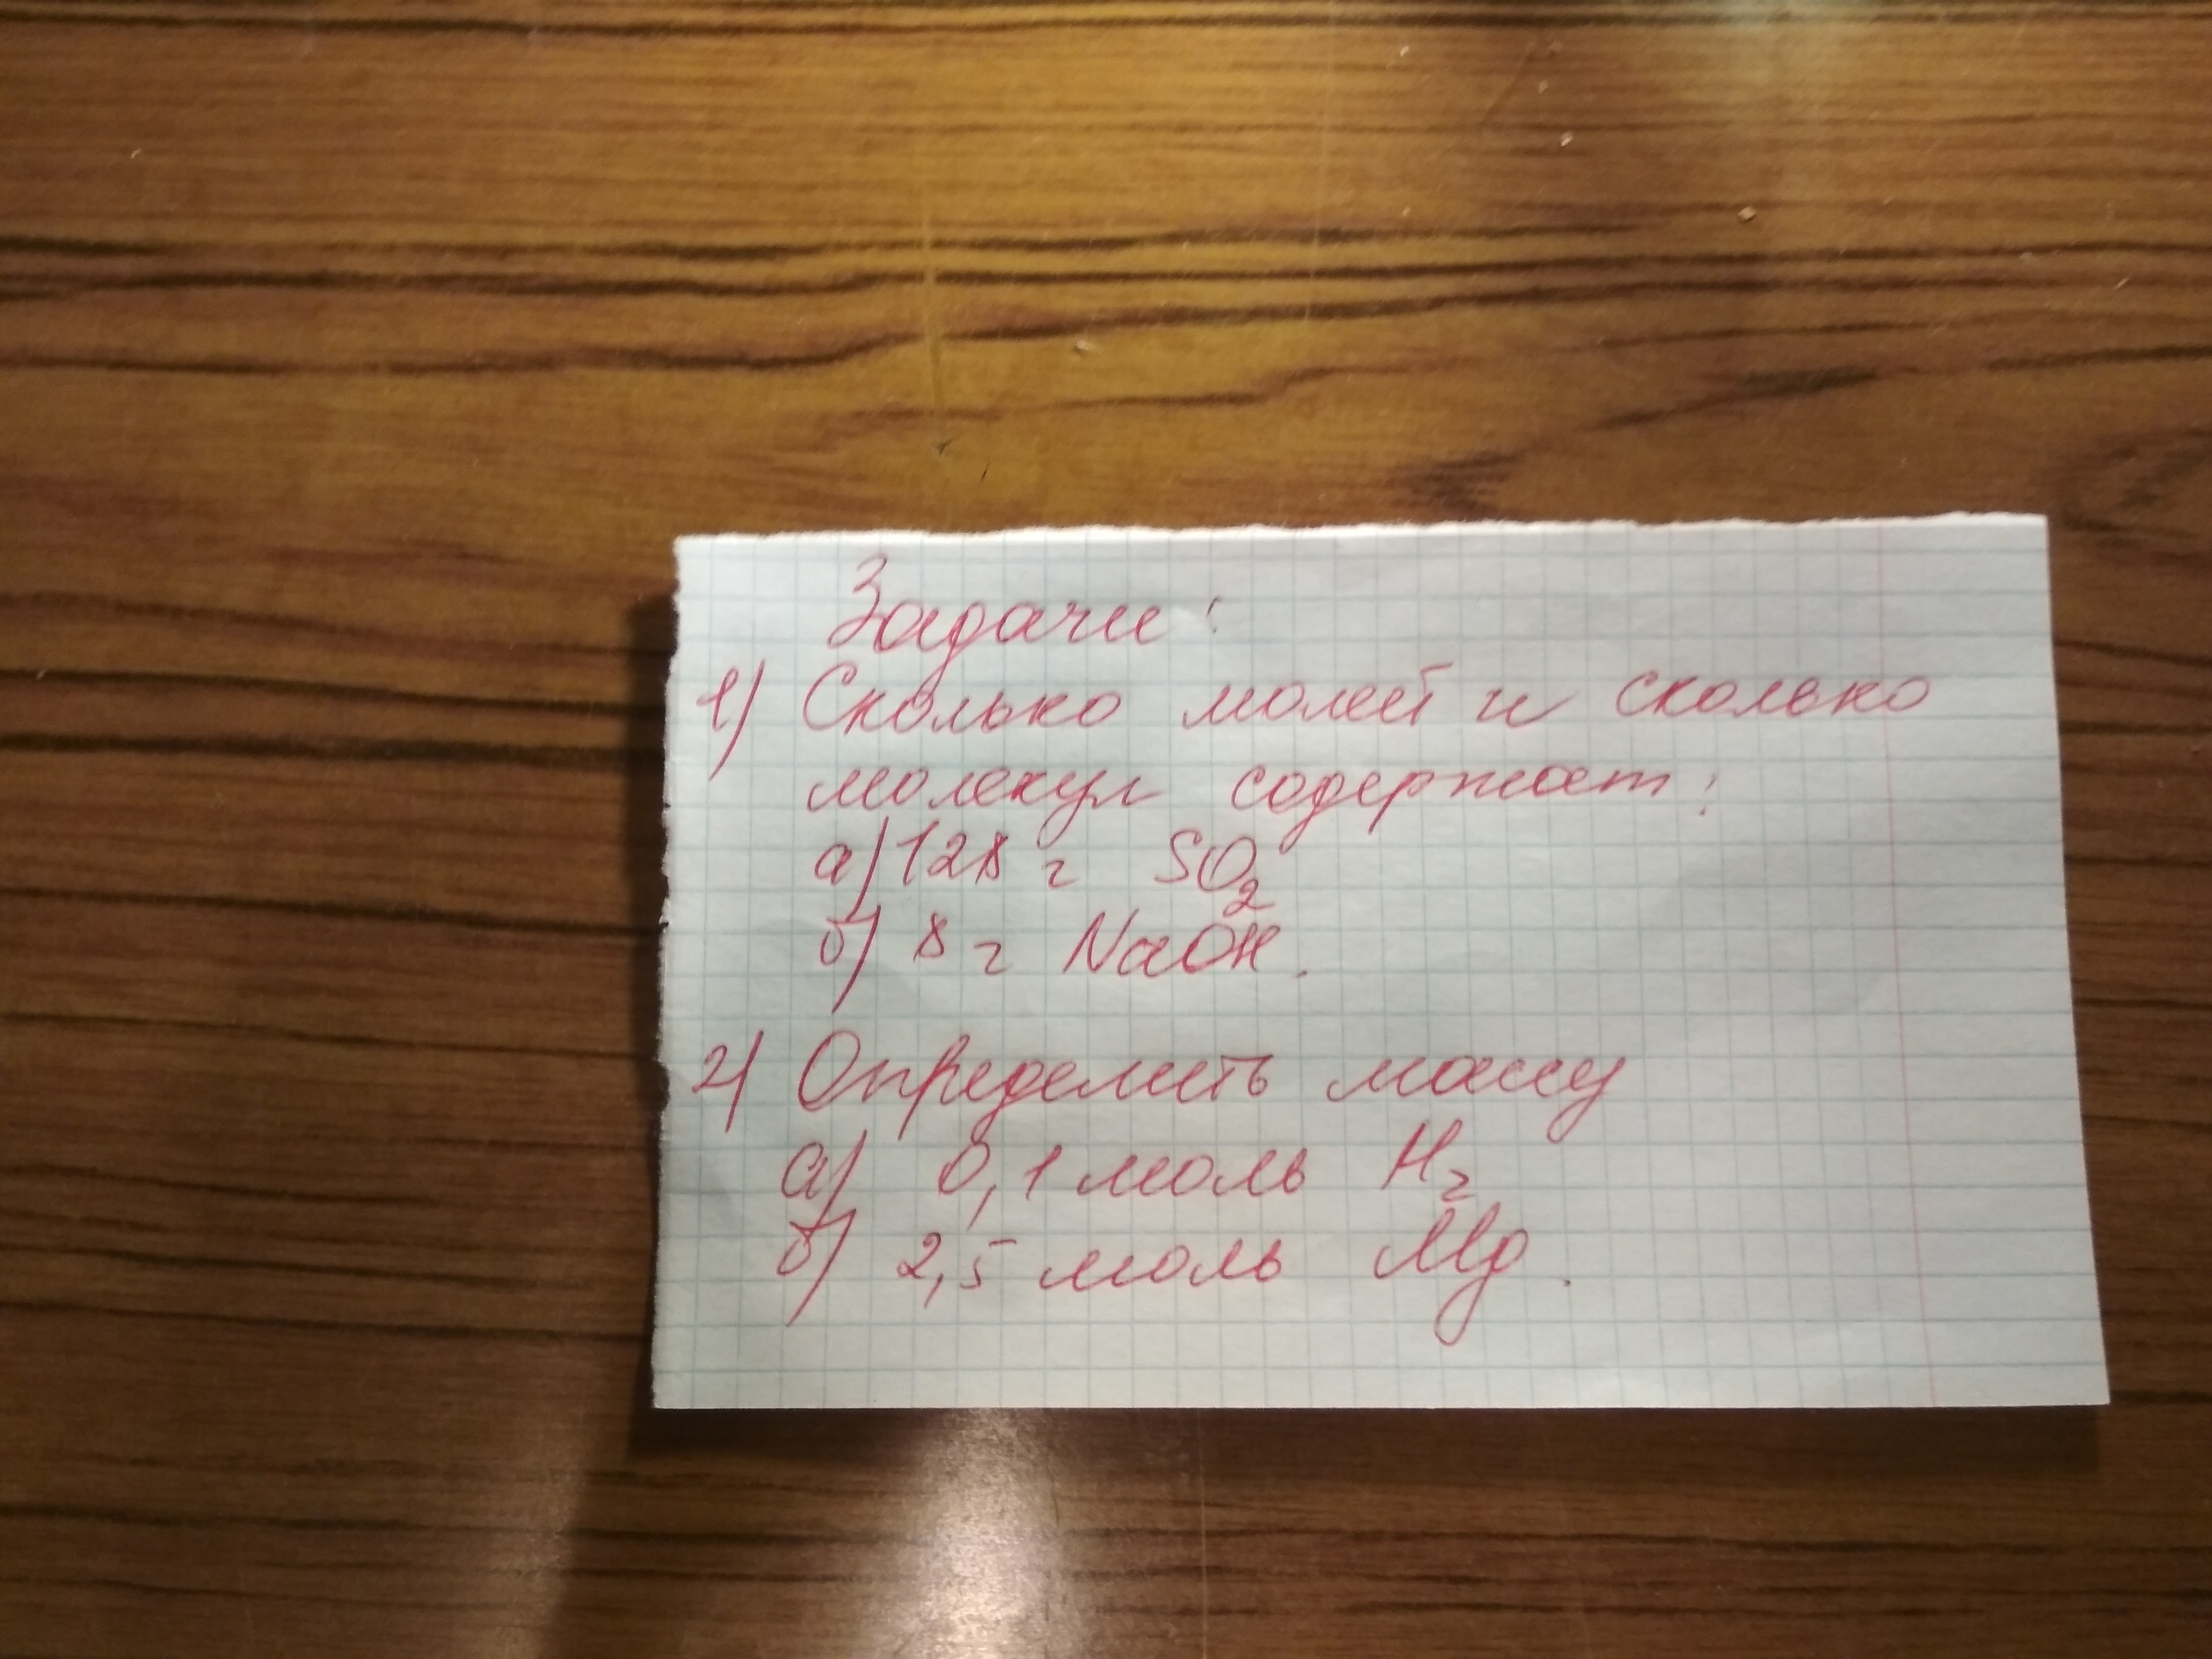 Задачи:
1) Сколько молей и сколько
молекул содержат:
а) 128 г SO₂
б) 8 г NaOH.
2) Определить массу
а) 0,1 моль H₂
б) 2,5 моль Mg.